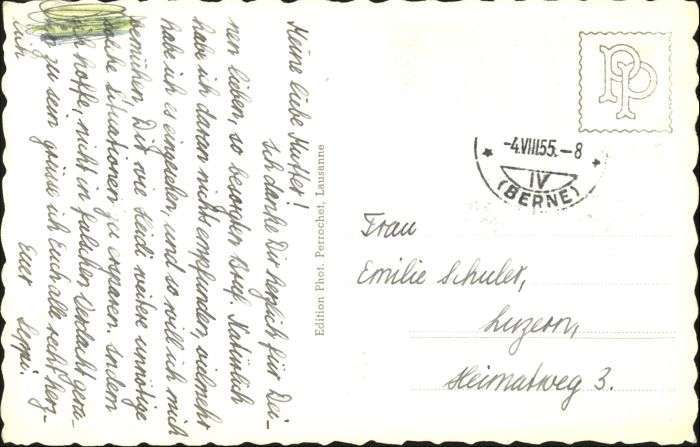 Meine liebe Mutter!
Ich danke Dir herzlich für Dei-
nen lieben, so besorgten Brief. Natürlich
habe ich daran nicht empfunden, vielmehr
habe ich es eingesehen, und so will ich mich
bemühen, Dir wie Heidi weitere unnötige
solche Situationen zu ersparen. Indem
ich hoffe, nicht in falschen Verdacht gera-
ten zu sein grüsse ich Euch alle recht herz-
lich
Euer Seppi.
Edition Phot. Perrochet, Lausanne
PP
-4.VIII.55.-8
IV
(BERNE)
Frau
Emilie Schuler,
Luzern,
Heimatweg 3.